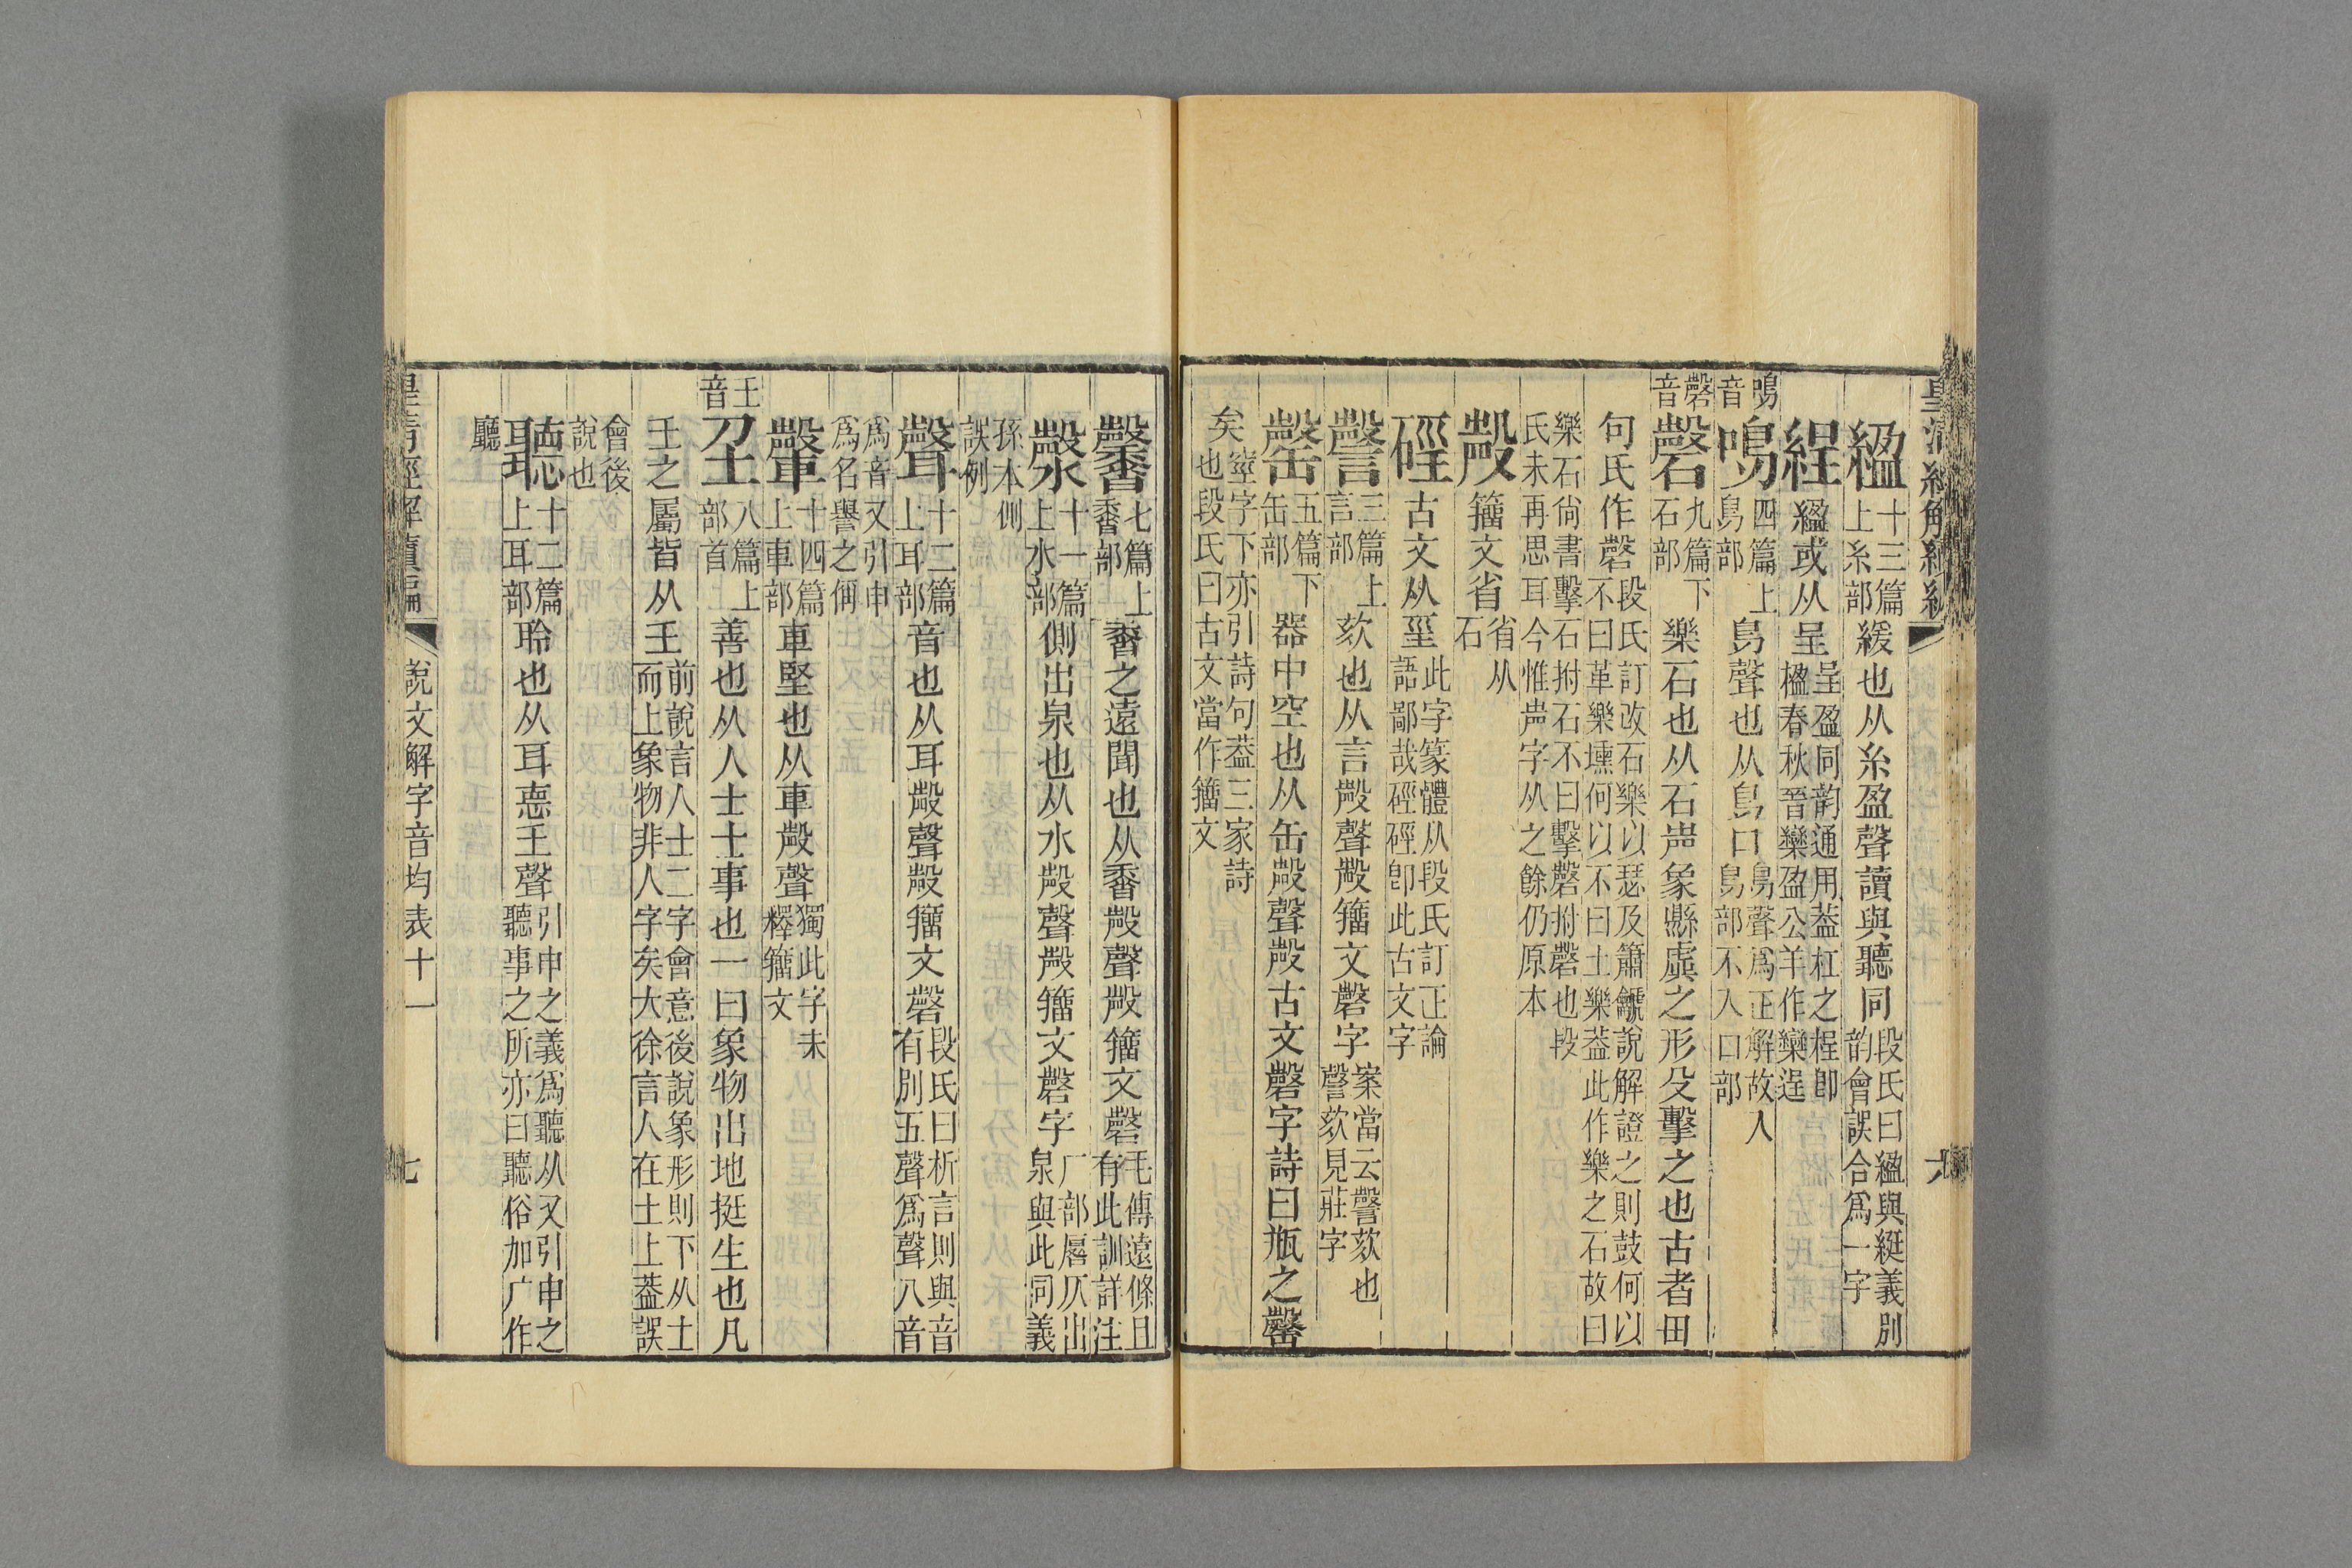 皇清經解續編 六
䋼十三篇上糸部緩也从糸盈聲讀與聽同段氏曰䋼與綎義別韵會誤合爲一字
䋼或从呈呈盈同韵通用葢桯之桯卽楹春秋晉欒盈公羊作欒逞
鳴音鳴四篇上鳥部鳥聲也从鳥口鳥聲爲正解故入鳥部不入口部
磬音磬九篇下石部樂石也从石声象縣虡之形殳擊之也古者毌
句氏作磬段氏訂改石樂以瑟及簫龤說解證之則鼓何以不曰革樂壎何以不曰土樂葢此作樂之石故曰
樂石尙書擊石拊石不曰擊磬拊磬也段氏未再思耳今惟声字从之餘仍原本
殸籒文省省从石
硜古文从巠此字篆體从段氏訂正論語鄙哉硜硜卽此古文字
謦三篇上言部欬也从言殸聲殸籒文磬字案當云謦欬也謦欬見莊字
罄五篇下缶部器中空也从缶殸聲殸古文磬字詩曰瓶之罄
矣窒字下亦引詩句葢三家詩也段氏曰古文當作籒文
馨七篇上黍部香之遠聞也从香殸聲殸籒文磬毛傳遠條且有此訓詳注
漀十一篇上水部側出泉也从水殸聲殸籒文磬字厂部厬仄出泉與此同義
孫本側誤例
聲十二篇上耳部音也从耳殸聲殸籒文磬段氏曰析言則與音有別五聲爲聲八音
爲音又引申爲名譽之偁
𨍃十四篇上車部車堅也从車殸聲獨此字未釋籒文
𡈼音𡈼八篇上部首善也从人士士事也一曰象物出地挺生也凡
𡈼之屬皆从𡈼前說言人士二字會意後說象形則下从土而上象物非人字矣大徐言人在土上葢誤
會後說也
聽十二篇上耳部聆也从耳悳𡈼聲引申之義爲聽从又引申之聽事之所亦曰聽俗加广作
廳
皇清經解續編 說文解字音均表十一 七